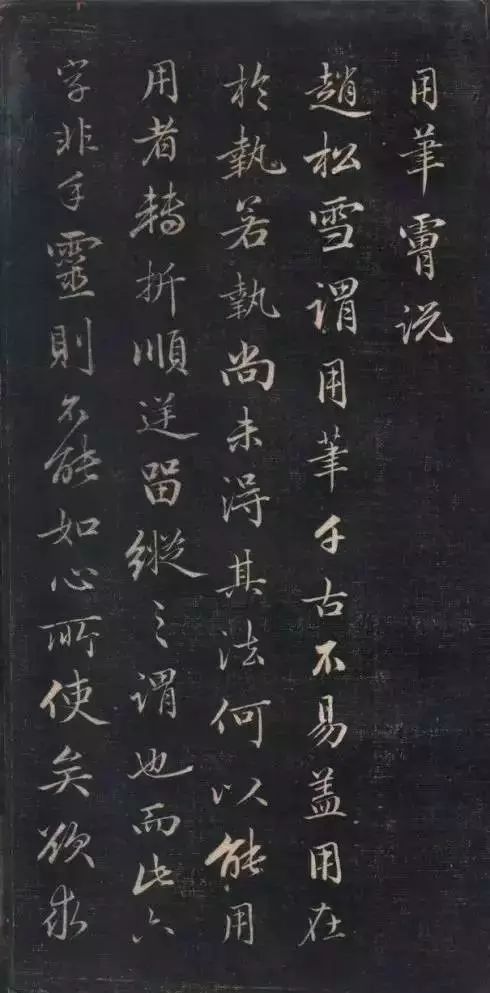 用筆膚說
趙松雪謂用筆千古不易蓋用在
於執若執尚未得其法何以能用
用者轉折順逆留縱之謂也而此六
字非手靈則不能如心所使矣欲求